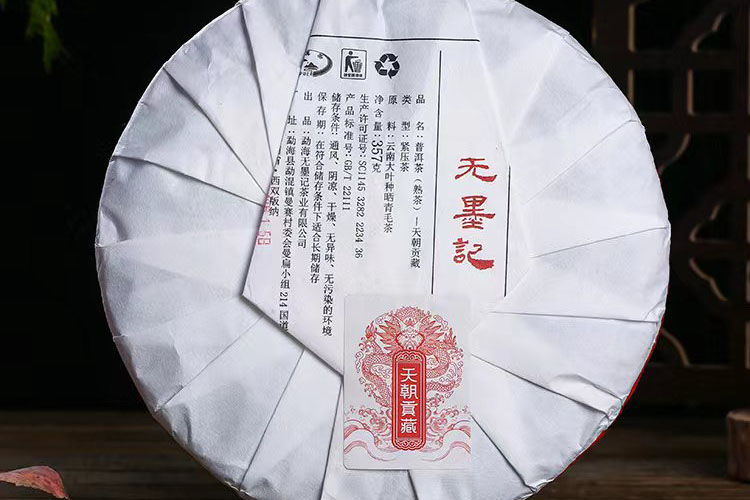 无墨記
品 名：普洱茶（熟茶）—天朝贡藏
类 型：紧压茶
原 料：云南大叶种晒青毛茶
净含量：357克
生产许可证号：SC1145 3282 2234 36
产品标准号：GB/T 22111
储存条件：通风、阴凉、干燥、无异味、无污染的环境
保 存 期：在符合储存条件下适合长期储存
出 品：勐海无墨记茶业有限公司
址：勐海县勐混镇曼赛村委会曼扁小组 214 国道
西双版纳
天朝贡藏